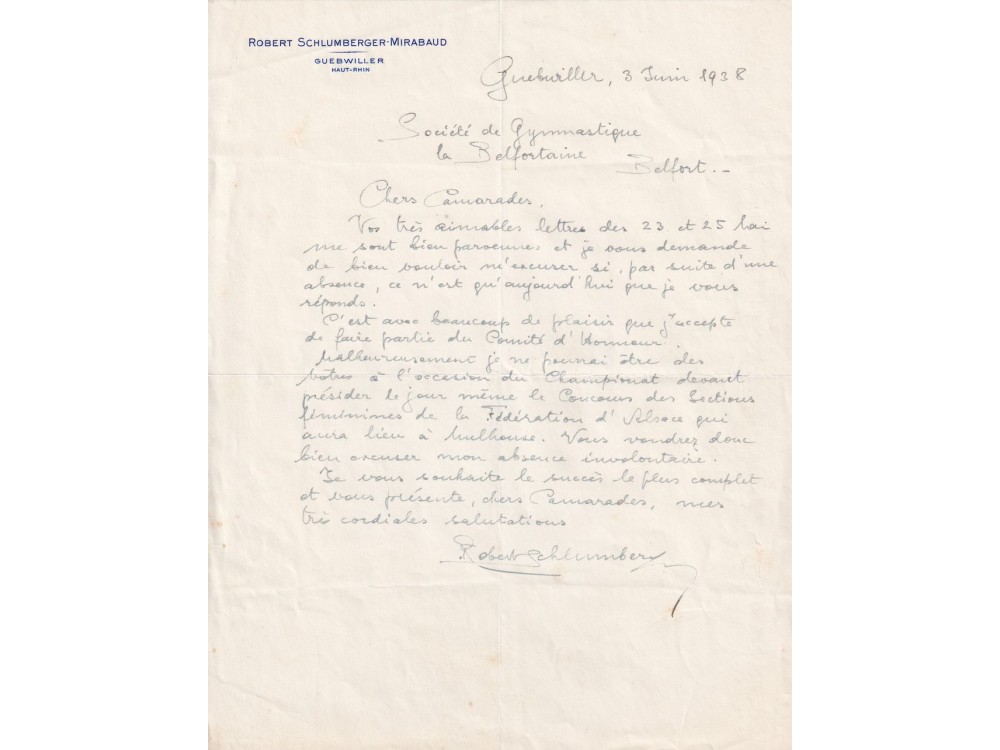 ROBERT SCHLUMBERGER-MIRABAUD
GUEBWILLER
HAUT-RHIN
Guebwiller, 3 Juin 1938
Société de Gymnastique
la Belfortaine
Belfort.-
Chers Camarades,
Vos très aimables lettres des 23 et 25 Mai
me sont bien parvenues et je vous demande
de bien vouloir m'excuser si, par suite d'une
absence, ce n'est qu'aujourd'hui que je vous
réponds.
C'est avec beaucoup de plaisir que j'accepte
de faire partie du Comité d'Honneur.
Malheureusement je ne pourrai être des
vôtres à l'occasion du Championat devant
présider le jour même le Concours des Sections
féminines de la Fédération d'Alsace qui
aura lieu à Mulhouse. Vous voudrez donc
bien excuser mon absence involontaire.
Je vous souhaite le succès le plus complet
et vous présente, chers Camarades, mes
très cordiales salutations
Robert Schlumberger